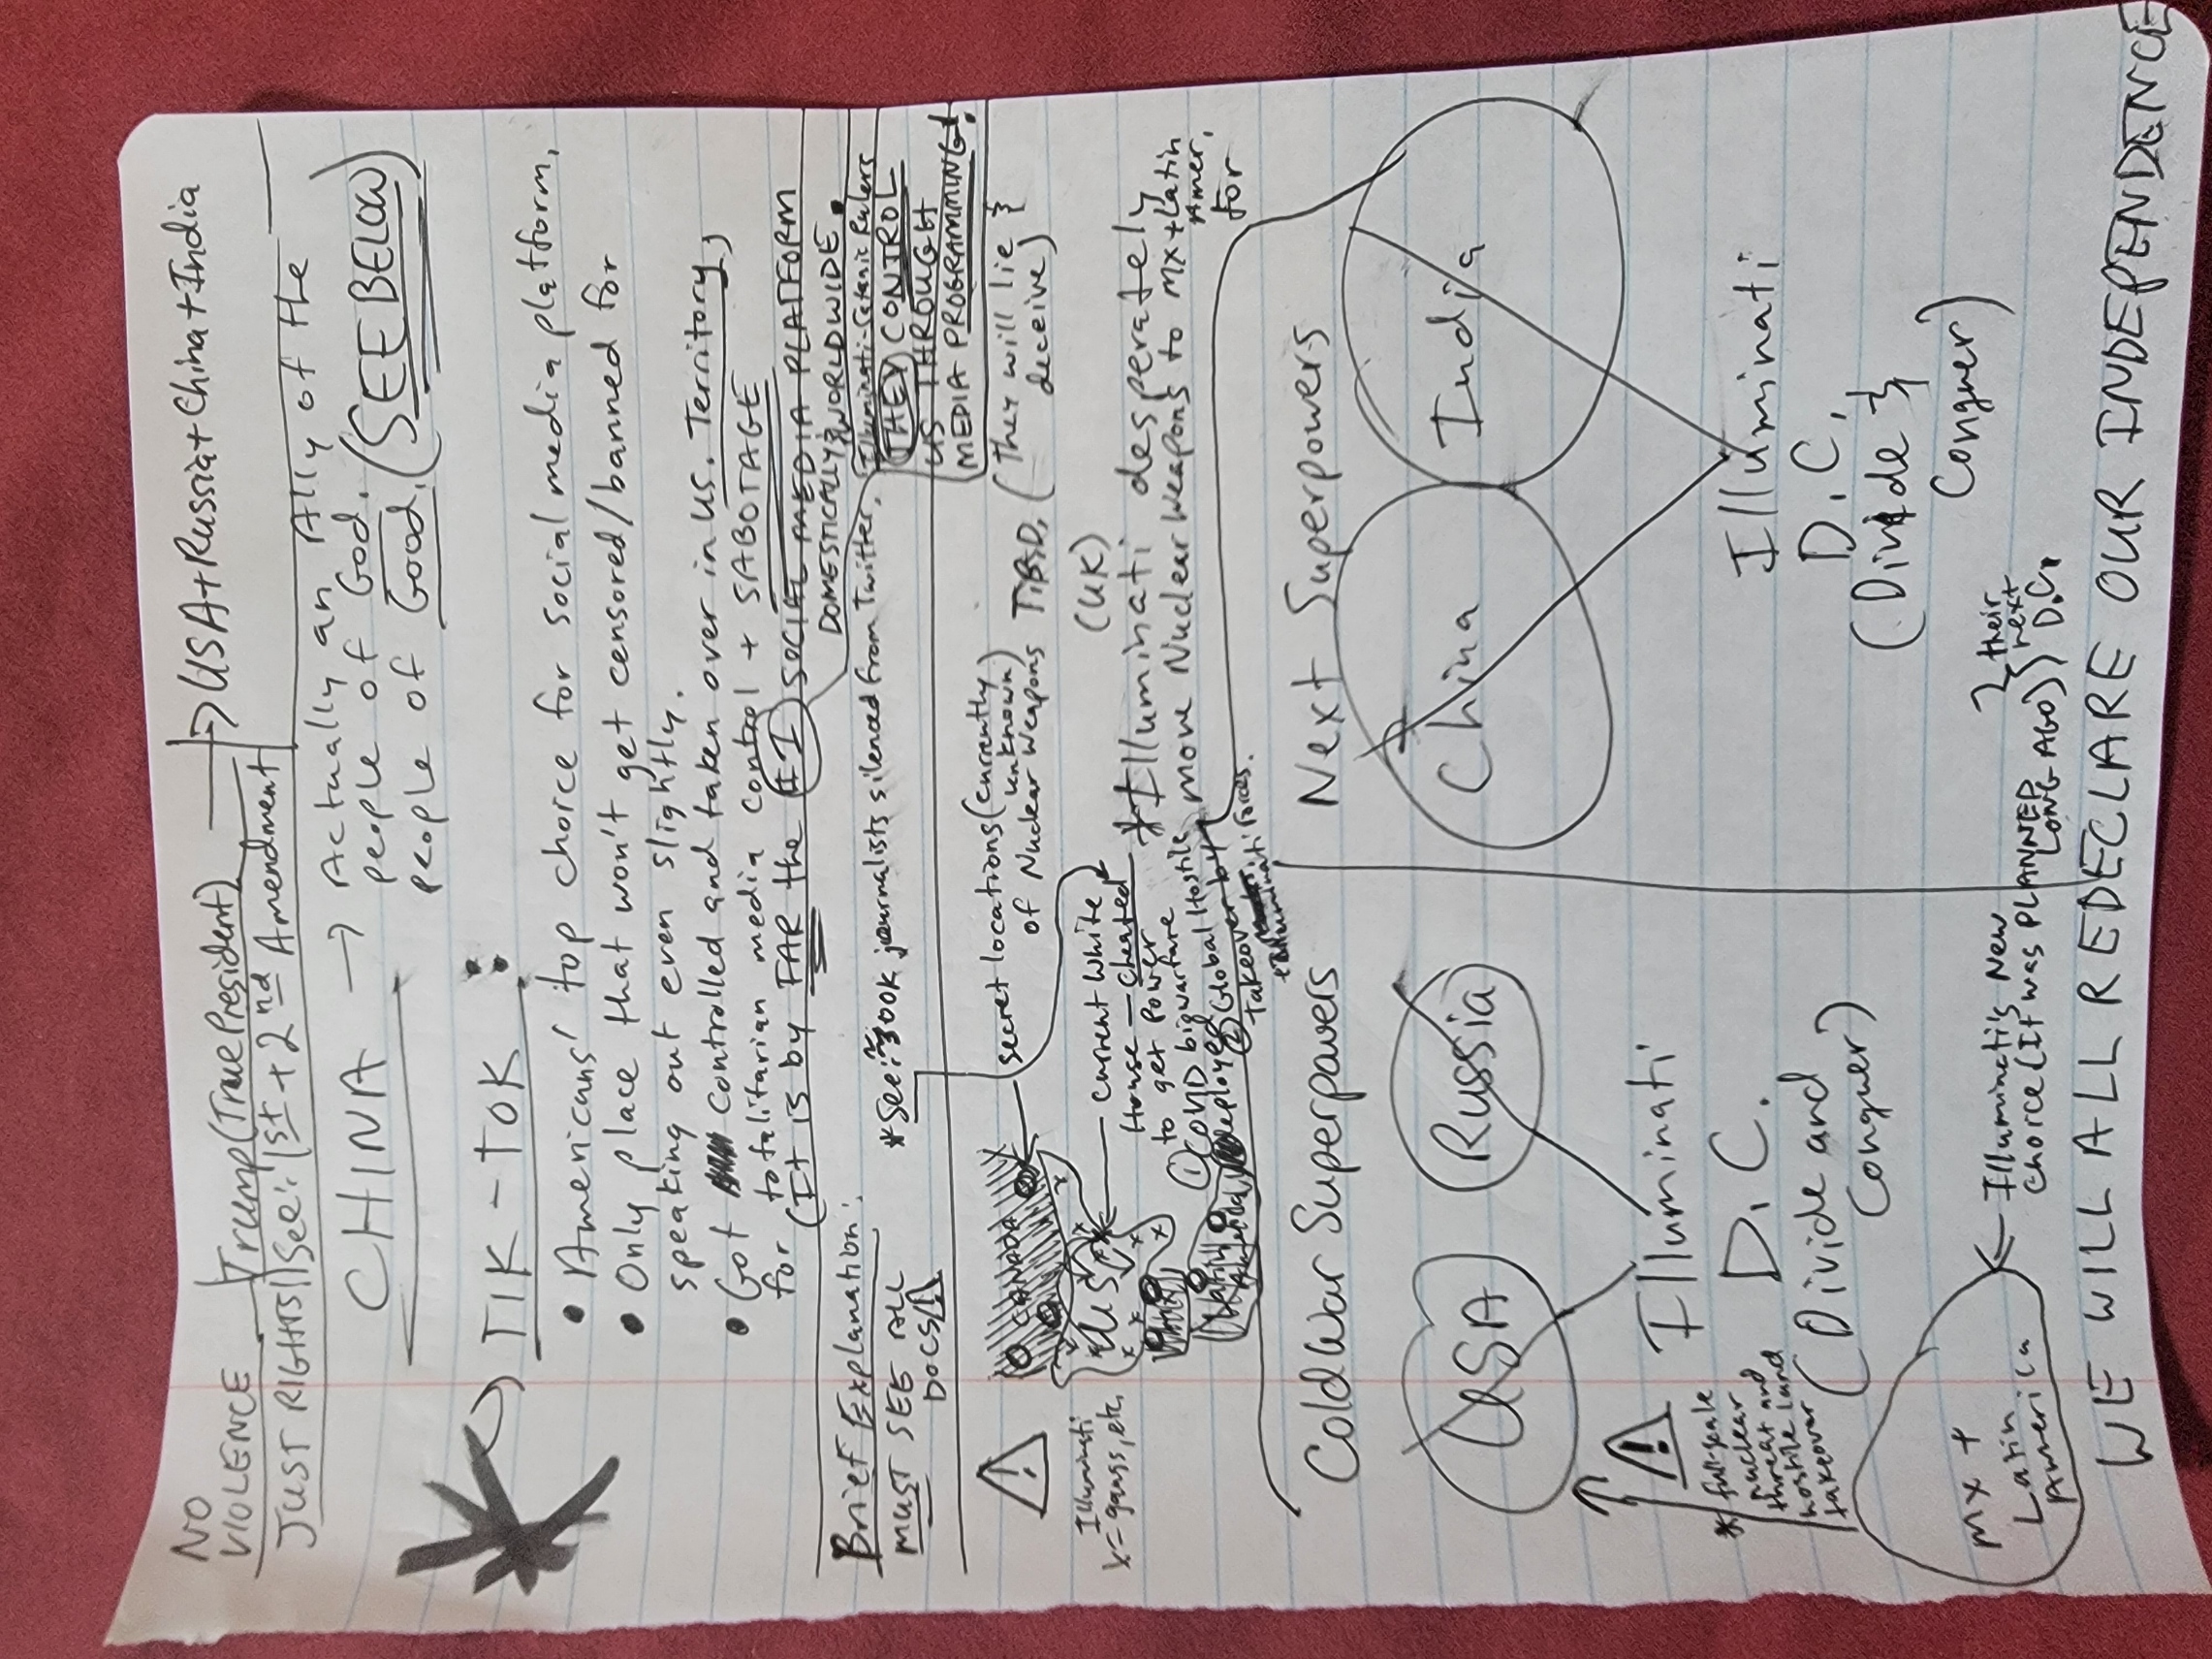 NO
VIOLENCE
JUST RIGHTS!
Trump (True President)
See: 1st + 2nd Amendment
USA + Russia + China + India
CHINA → Actually an Ally of the
people of God.
people of Good. (SEE BELOW)
TIK-TOK:
• Americans' top choice for social media platform.
• Only place that won't get censored/banned for
speaking out even slightly.
• Got controlled and taken over in US. Territory,
for totalitarian media control + SABOTAGE
(It is by FAR the #1 SOCIAL MEDIA PLATFORM
DOMESTICALLY & WORLDWIDE.
Brief Explanation:
MUST SEE ALL
DOCS!
*See: ~300k journalists silenced from Twitter.
Illuminati-Satanic Rulers
THEY CONTROL
US THROUGH
MEDIA PROGRAMMING!
!
Illuminati
x = gangs, etc.
CANADA
US
Latin
America
secret locations (currently
unknown)
of Nuclear Weapons T.B.D. (They will lie &
deceive)
Current White
House - cheated
to get power
① COVID biowarfare
deployed
② Global Hostile
Takeover by
Illuminati forces.
(UK)
*Illuminati desperately
move Nuclear Weapons to MX + Latin
Amer.
for
Cold War Superpowers
USA
Russia
Illuminati
D.C.
(Divide and
Conquer)
Next Superpowers
China
India
Illuminati
D.C.
(Divide &
Conquer)
!
* full-scale
nuclear
threat and
hostile land
takeover
MX +
Latin
America
← Illuminati's New
choice (It was PLANNED
LONG AGO)
their
next
D.C.
WE WILL ALL REDECLARE OUR INDEPENDENCE